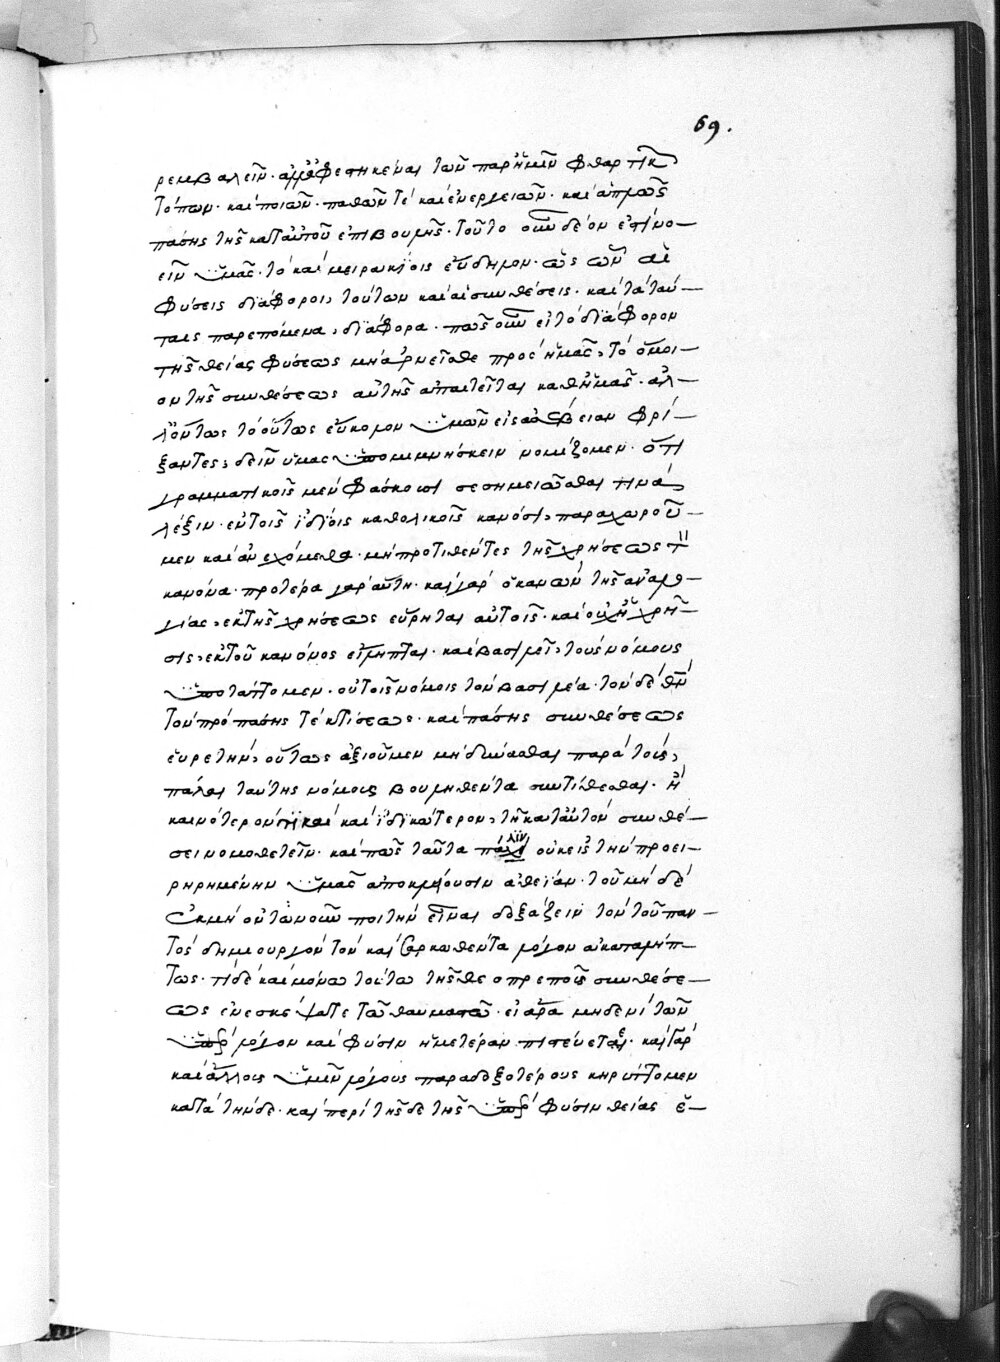 69.
ρεμβαλεῖν· ἀλλ' ἀφεστηκέναι τῶν παρ' ἡμῖν φθαρτικ
τόπων· καὶ ποιῶν· παθῶν τὲ καὶ ἐνεργειῶν· καὶ ἁπλῶς
πάσης τῆς κατ' αὐτοῦ ἐπιβουλῆς· τοῦτο οὖν δέον ἐπίνο-
εῖν ὑμᾶς· τὸ καὶ μειρακίοις εὔδηλον· ὡς ὧν αἱ
φύσεις διάφοροι, τούτων καὶ αἱ συνθέσεις· καὶ τὰ ταύ-
ταις παρεπόμενα, διάφορα· πῶς οὖν εἰ τὸ διάφορον
τῆς θείας φύσεως μὴ ἀρνεῖσθε πρὸς ἡμᾶς, τὸ ὅμοι-
ον τῆς συνθέσεως αὐτῆς ἀπαιτεῖται καθ' ἡμᾶς· ἀλ-
λ' ὄντως τὸ οὕτως εὔκολον ὑμῶν εἰς ἀσέβειαν φρί-
ξαντες, δεῖν ὑμᾶς ὑπομιμνήσκειν νομίζομεν· ὅτι
γραμματικοῖς μὲν φάσκουσι σεσημειῶσθαι τινὰ
λέξιν· ἐν τοῖς ἰδίοις καθολικοῖς κανόσι, παραχωροῦ-
μεν καὶ ἀνεχόμεθα· μὴ προτιθέντες τῆς χρήσεως τ
κανόνα· προτέρα γὰρ αὕτη· καὶ γὰρ ὁ κανὼν τῆς ἀναλο-
γίας, ἐκ τῆς χρήσεως εὕρηται αὐτοῖς· καὶ οὐχ ἡ χρῆ-
σις, ἐκ τοῦ κανόνος εἴληπται· καὶ βασιλεῖ, τοὺς νόμους
ὑποτάττομεν· οὐ τοῖς νόμοις τὸν βασιλέα· τὸν δὲ θν
τὸν πρὸ πάσης τὲ κτίσεως· καὶ πάσης συνθέσεως
εὑρετὴν, οὕτως ἀξιοῦμεν μὴ δύνασθαι παρὰ τοὺς,
πάλαι ταύτης νόμους βουληθέντα συντίθεσθαι· ἢ
καινότερόν τι καὶ ἰδικώτερον, τῇ κατ' αὐτὸν συνθέ-
σει νομοθετεῖν· καὶ πῶς ταῦτα πάλιν οὐκ εἰς τὴν προει-
ρηρημένην ὑμᾶς ἀποκλείουσιν ἀθεΐαν· τοῦ μὴ δὲ
ἐκ μὴ ὄντων οὖν ποιητὴν εἶναι δοξάζειν τὸν τοῦ παν-
τὸς δημιουργὸν τὸν καὶ σαρκωθέντα λόγον ἀκαταλήπ-
τως· τί δὲ καὶ μόνω τούτω τῆς θεοπρεποῦς συνθέσε-
ως ἐνεσκέψατε τῶν θαυμάτων· εἰ ἄρα μηδενὶ τῶν
ὑπὲρ λόγον καὶ φύσιν ἡμετέραν πιστεύεται· καὶ γὰρ
καὶ ἄλλοις ὑμῖν λόγους παραδοξοτέρους κηρύττομεν
κατὰ τήνδε· καὶ περὶ τῆσδε τῆς ὑπὲρ φύσιν θείας ἑ-